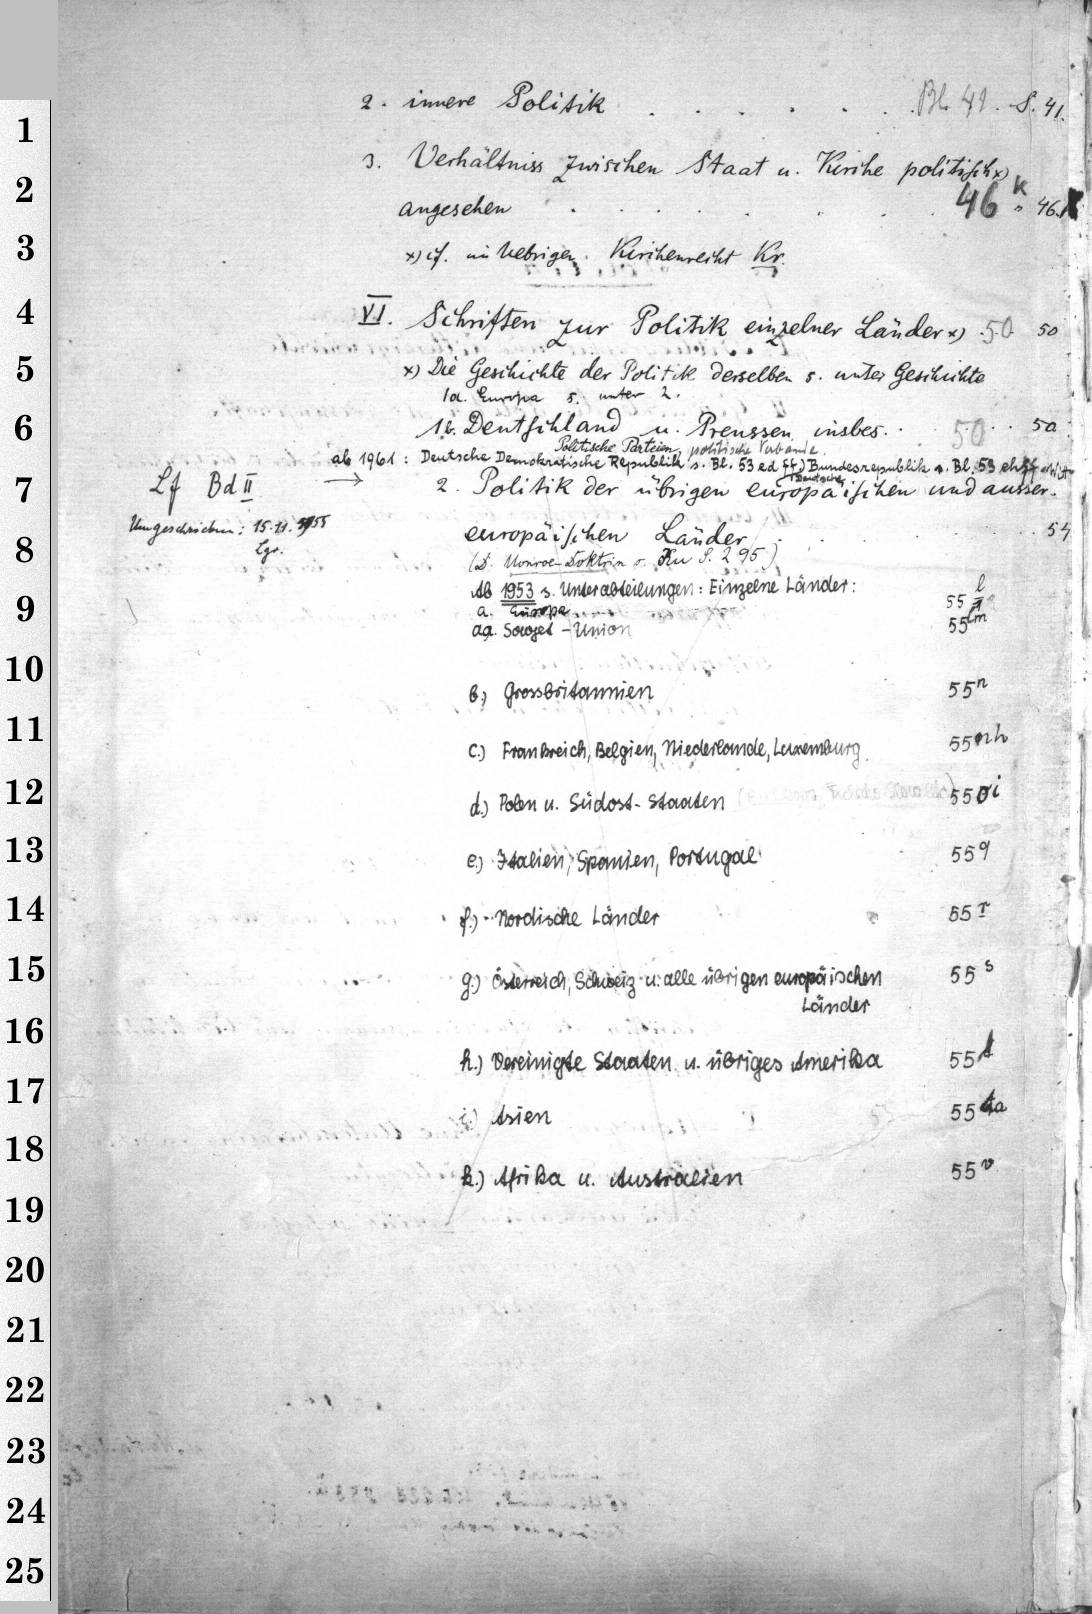 2. innere Politik . . . . . . Bl. 41. S. 41.
1
3. Verhältniss zwischen Staat u. Kirche politisch x)
2
angesehen . . . . . . 46 k " 46.
3
x) cf. im Uebrigen Kirchenrecht Kr.
4
VI. Schriften zur Politik einzelner Länder x) . 50 50
5
x) Die Geschichte der Politik derselben s. unter Geschichte
1a. Europa s. unter 2.
6
1b. Deutschland u. Preussen insbes. . . . 50 . . 50
Politische Parteien, politische Verbände.
ab 1961: Deutsche Demokratische Republik s. Bl. 53 ed ff.) Bundesrepublik s. Bl. 53
7
Lf Bd II → 2. Politik der übrigen europäischen und ausser-
Deutsche
Umgeschrieben: 15.11.1955
Lgr.
8
europäischen Länder . . . . . . 54
(D. Monroe-Doktrin s. S. 295)
Ab 1953 s. Unterabteilungen: Einzelne Länder:
9
a. Europa 55 l
aa. Sowjet-Union 55 m
10
b.) Grossbritannien 55 n
11
c.) Frankreich, Belgien, Niederlande, Luxemburg 55 nh
12
d.) Polen u. Südost-Staaten 55 oi
13
e.) Italien, Spanien, Portugal 55 q
14
f.) Nordische Länder 55 r
15
g.) Österreich, Schweiz u. alle übrigen europäischen 55 s
Länder
16
h.) Vereinigte Staaten u. übriges Amerika 55 t
17
i.) Asien 55 ta
18
k.) Afrika u. Australien 55 v
19
20
21
22
23
24
25